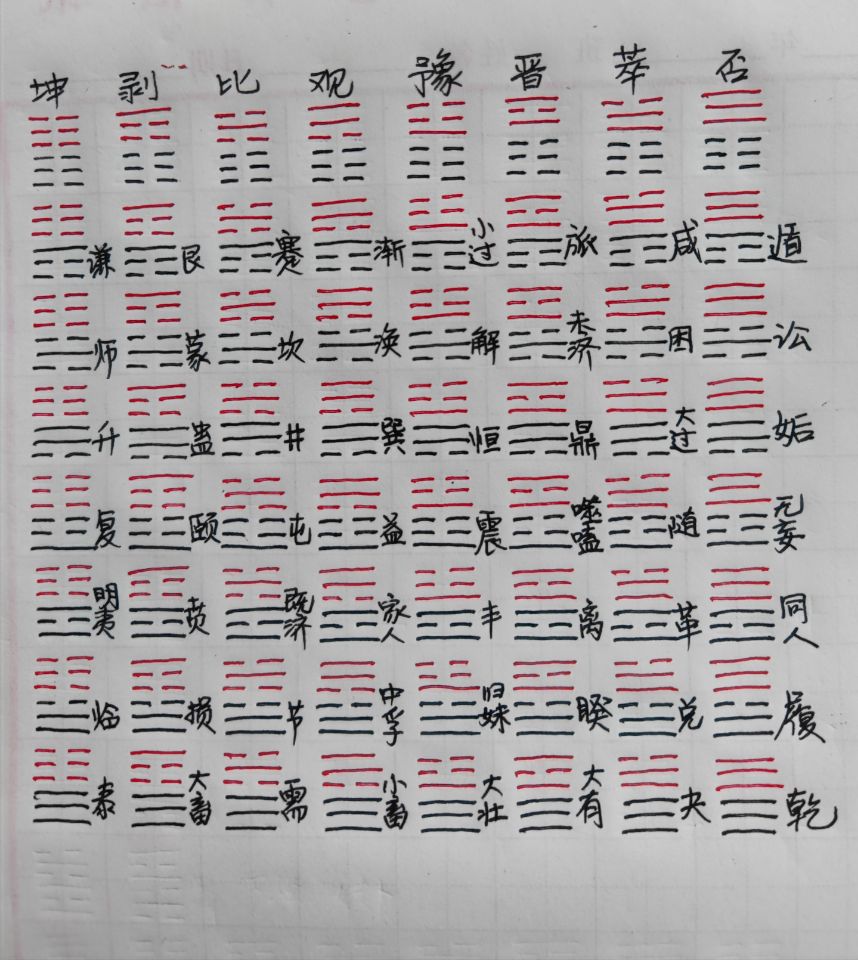 坤 剥 比 观 豫 晋 萃 否
谦 艮 蹇 渐 小过 旅 咸 遁
师 蒙 坎 涣 解 未济 困 讼
升 蛊 井 巽 恒 鼎 大过 姤
复 颐 屯 益 震 噬嗑 随 无妄
明夷 贲 既济 家人 丰 离 革 同人
临 损 节 中孚 归妹 睽 兑 履
泰 大畜 需 小畜 大壮 大有 夬 乾